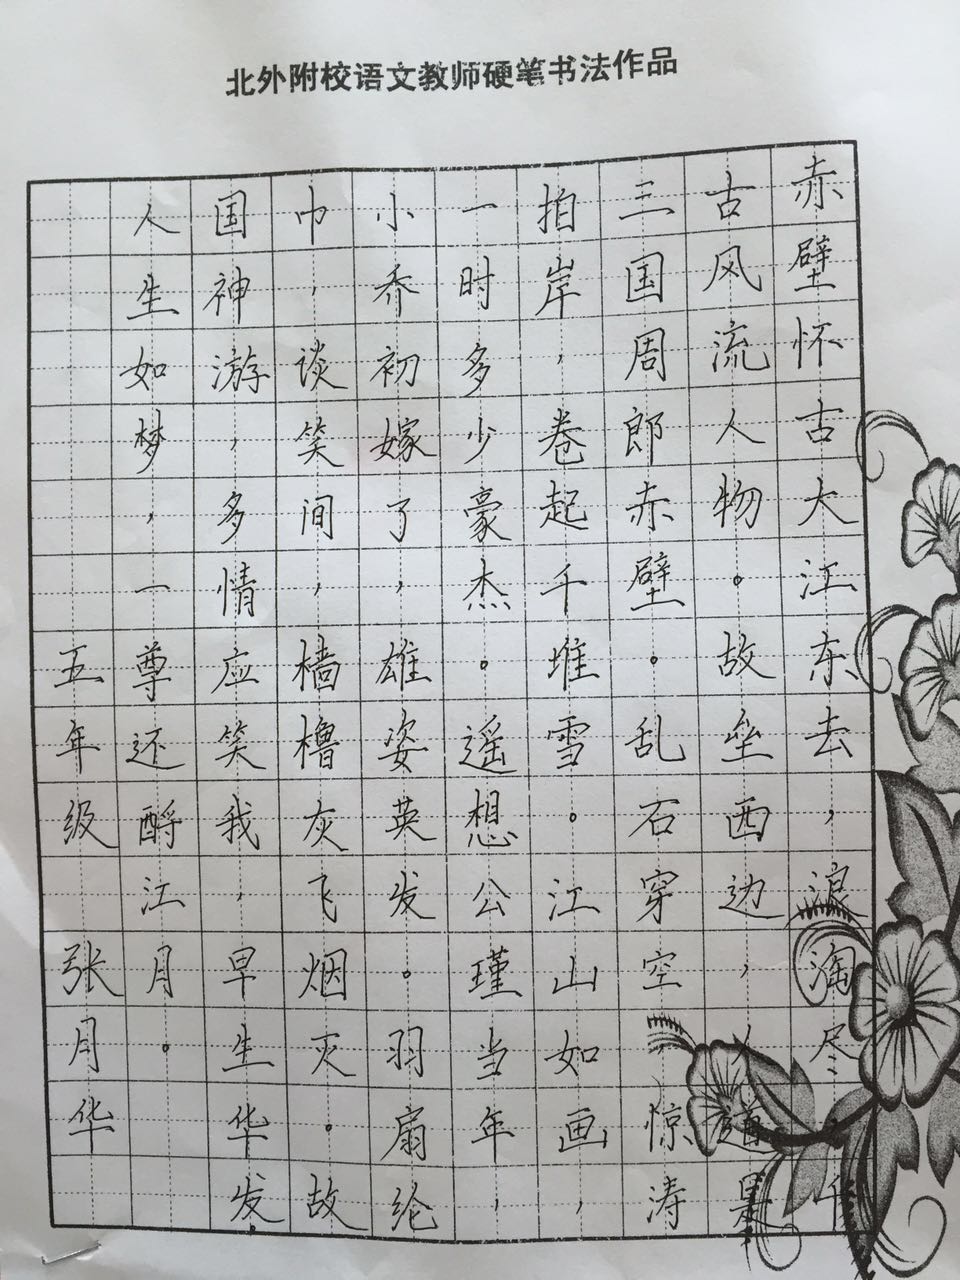 北外附校语文教师硬笔书法作品
赤壁怀古大江东去，浪淘尽，千
古风流人物。故垒西边，人道是
三国周郎赤壁。乱石穿空，惊涛
拍岸，卷起千堆雪。江山如画，
一时多少豪杰。遥想公瑾当年，
小乔初嫁了，雄姿英发。羽扇纶
巾，谈笑间，樯橹灰飞烟灭。故
国神游，多情应笑我，早生华发.
人生如梦，一尊还酹江月。
五年级 张月华